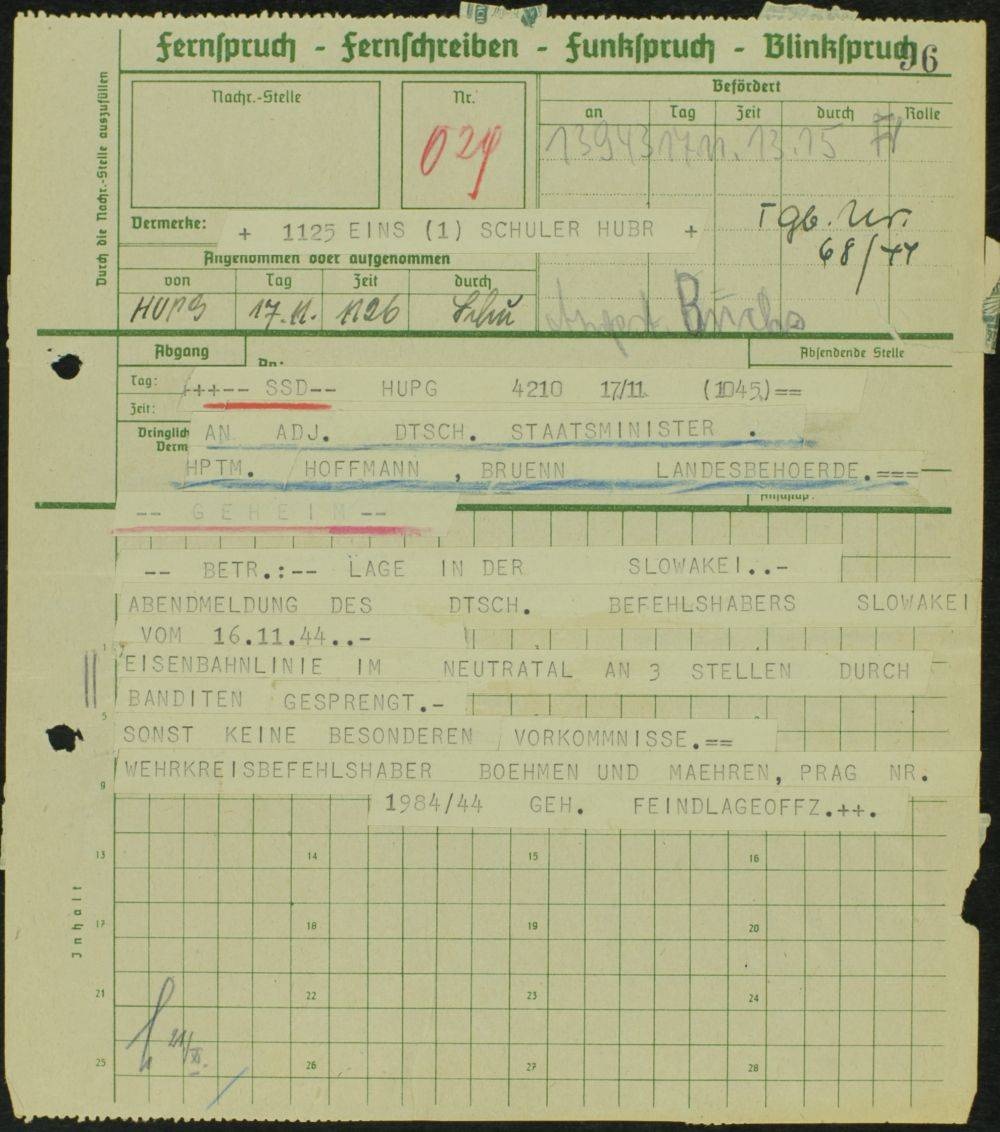 Fernspruch - Fernschreiben - Funkspruch - Blinkspruch
96
Durch die Nachr.-Stelle auszufüllen
Nachr.-Stelle
Nr.
029
Befördert
an Tag Zeit durch Rolle
13943 17.11. 13.15
Vermerke:
+ 1125 EINS (1) SCHULER HUBR +
Tgb. Nr.
68/44
Angenommen oder aufgenommen
von Tag Zeit durch
HUPG 17.11. 1126 Schu
Buchs
Abgang
An:
Absendende Stelle
Tag:
+++-- SSD-- HUPG 4210 17/11. (1045)==
Zeit:
Dringlich
Verm
AN ADJ. DTSCH. STAATSMINISTER .
HPTM. HOFFMANN , BRUENN LANDESBEHOERDE.===
-- G E H E I M --
-- BETR.:-- LAGE IN DER SLOWAKEI..-
ABENDMELDUNG DES DTSCH. BEFEHLSHABERS SLOWAKEI
VOM 16.11.44..-
EISENBAHNLINIE IM NEUTRATAL AN 3 STELLEN DURCH
BANDITEN GESPRENGT.-
5
SONST KEINE BESONDEREN VORKOMMNISSE.==
WEHRKREISBEFEHLSHABER BOEHMEN UND MAEHREN, PRAG NR.
9
1984/44 GEH. FEINDLAGEOFFZ.++.
13 14 15 16
Inhalt
17 18 19 20
21 22 23 24
21/XI.
25 26 27 28